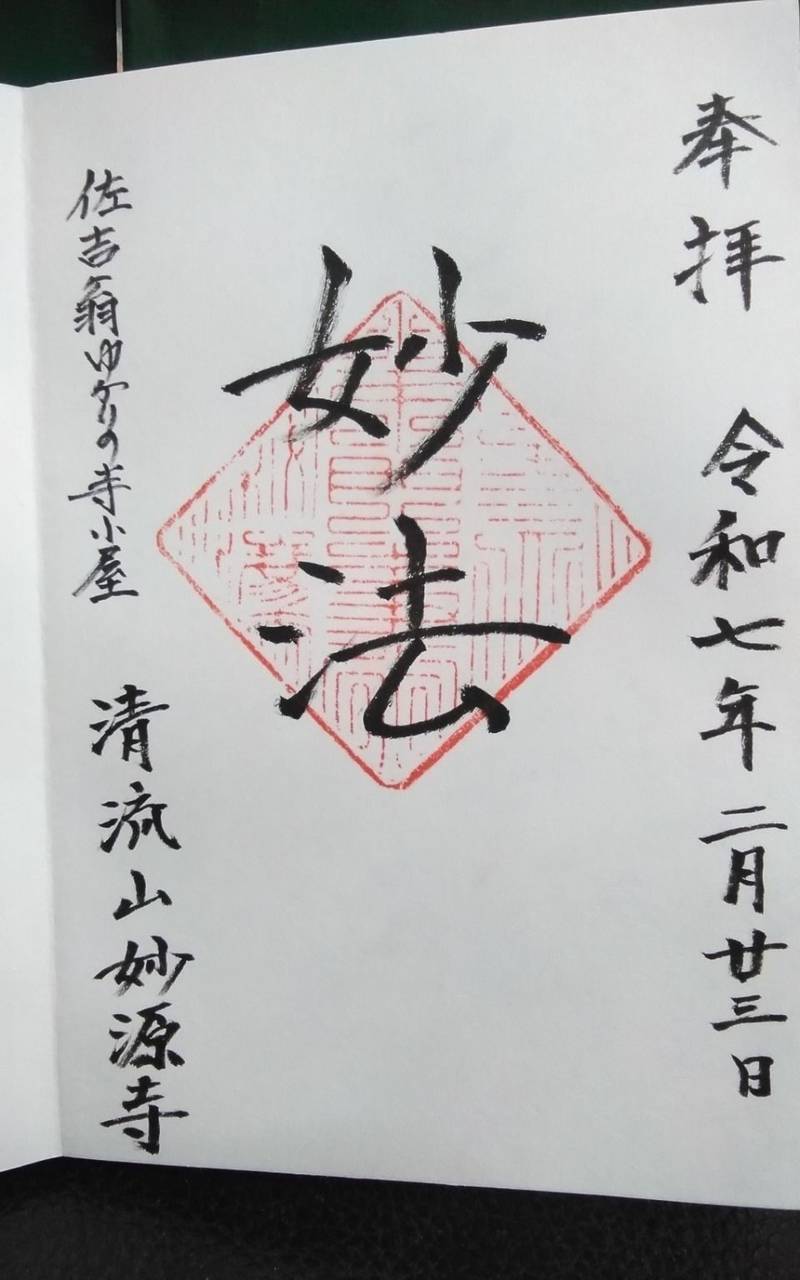 奉拝 令和七年二月廿三日
妙法
佐吉翁ゆかりの寺小屋 清流山妙源寺